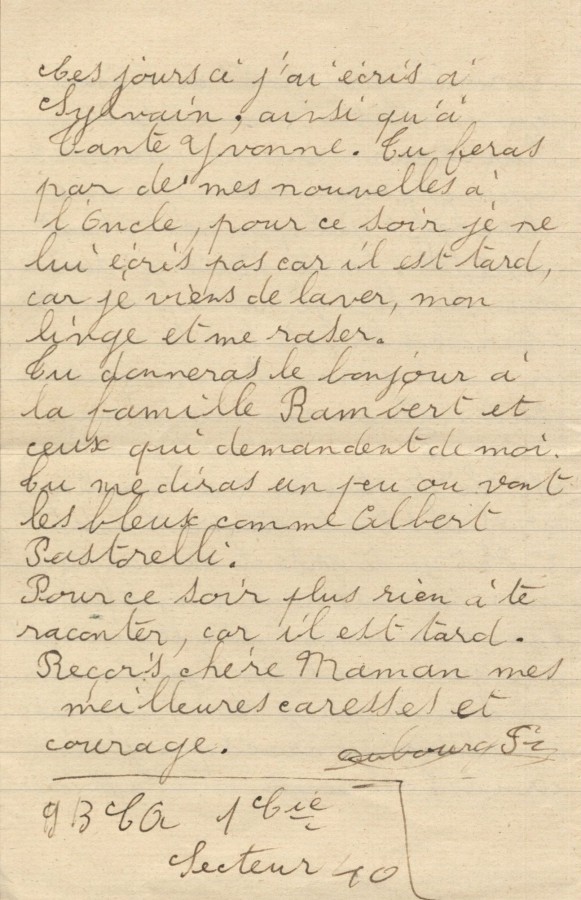 Ces jours ci j'ai écris à
Sylvain, ainsi qu'à
Tante Yvonne. Tu feras
par de mes nouvelles à
l'Oncle, pour ce soir je ne
lui écris pas car il est tard,
car je viens de laver, mon
linge et me raser.
Tu donneras le bonjour à
la famille Rambert et
ceux qui demandent de moi.
Tu me diras un peu ou vont
les bleux comme Albert
Pastorelli.
Pour ce soir plus rien à te
raconter, car il est tard.
Reçois chère Maman mes
meilleures caresses et
courage. Aubourg
9 B C A 1 Cie
Secteur 40